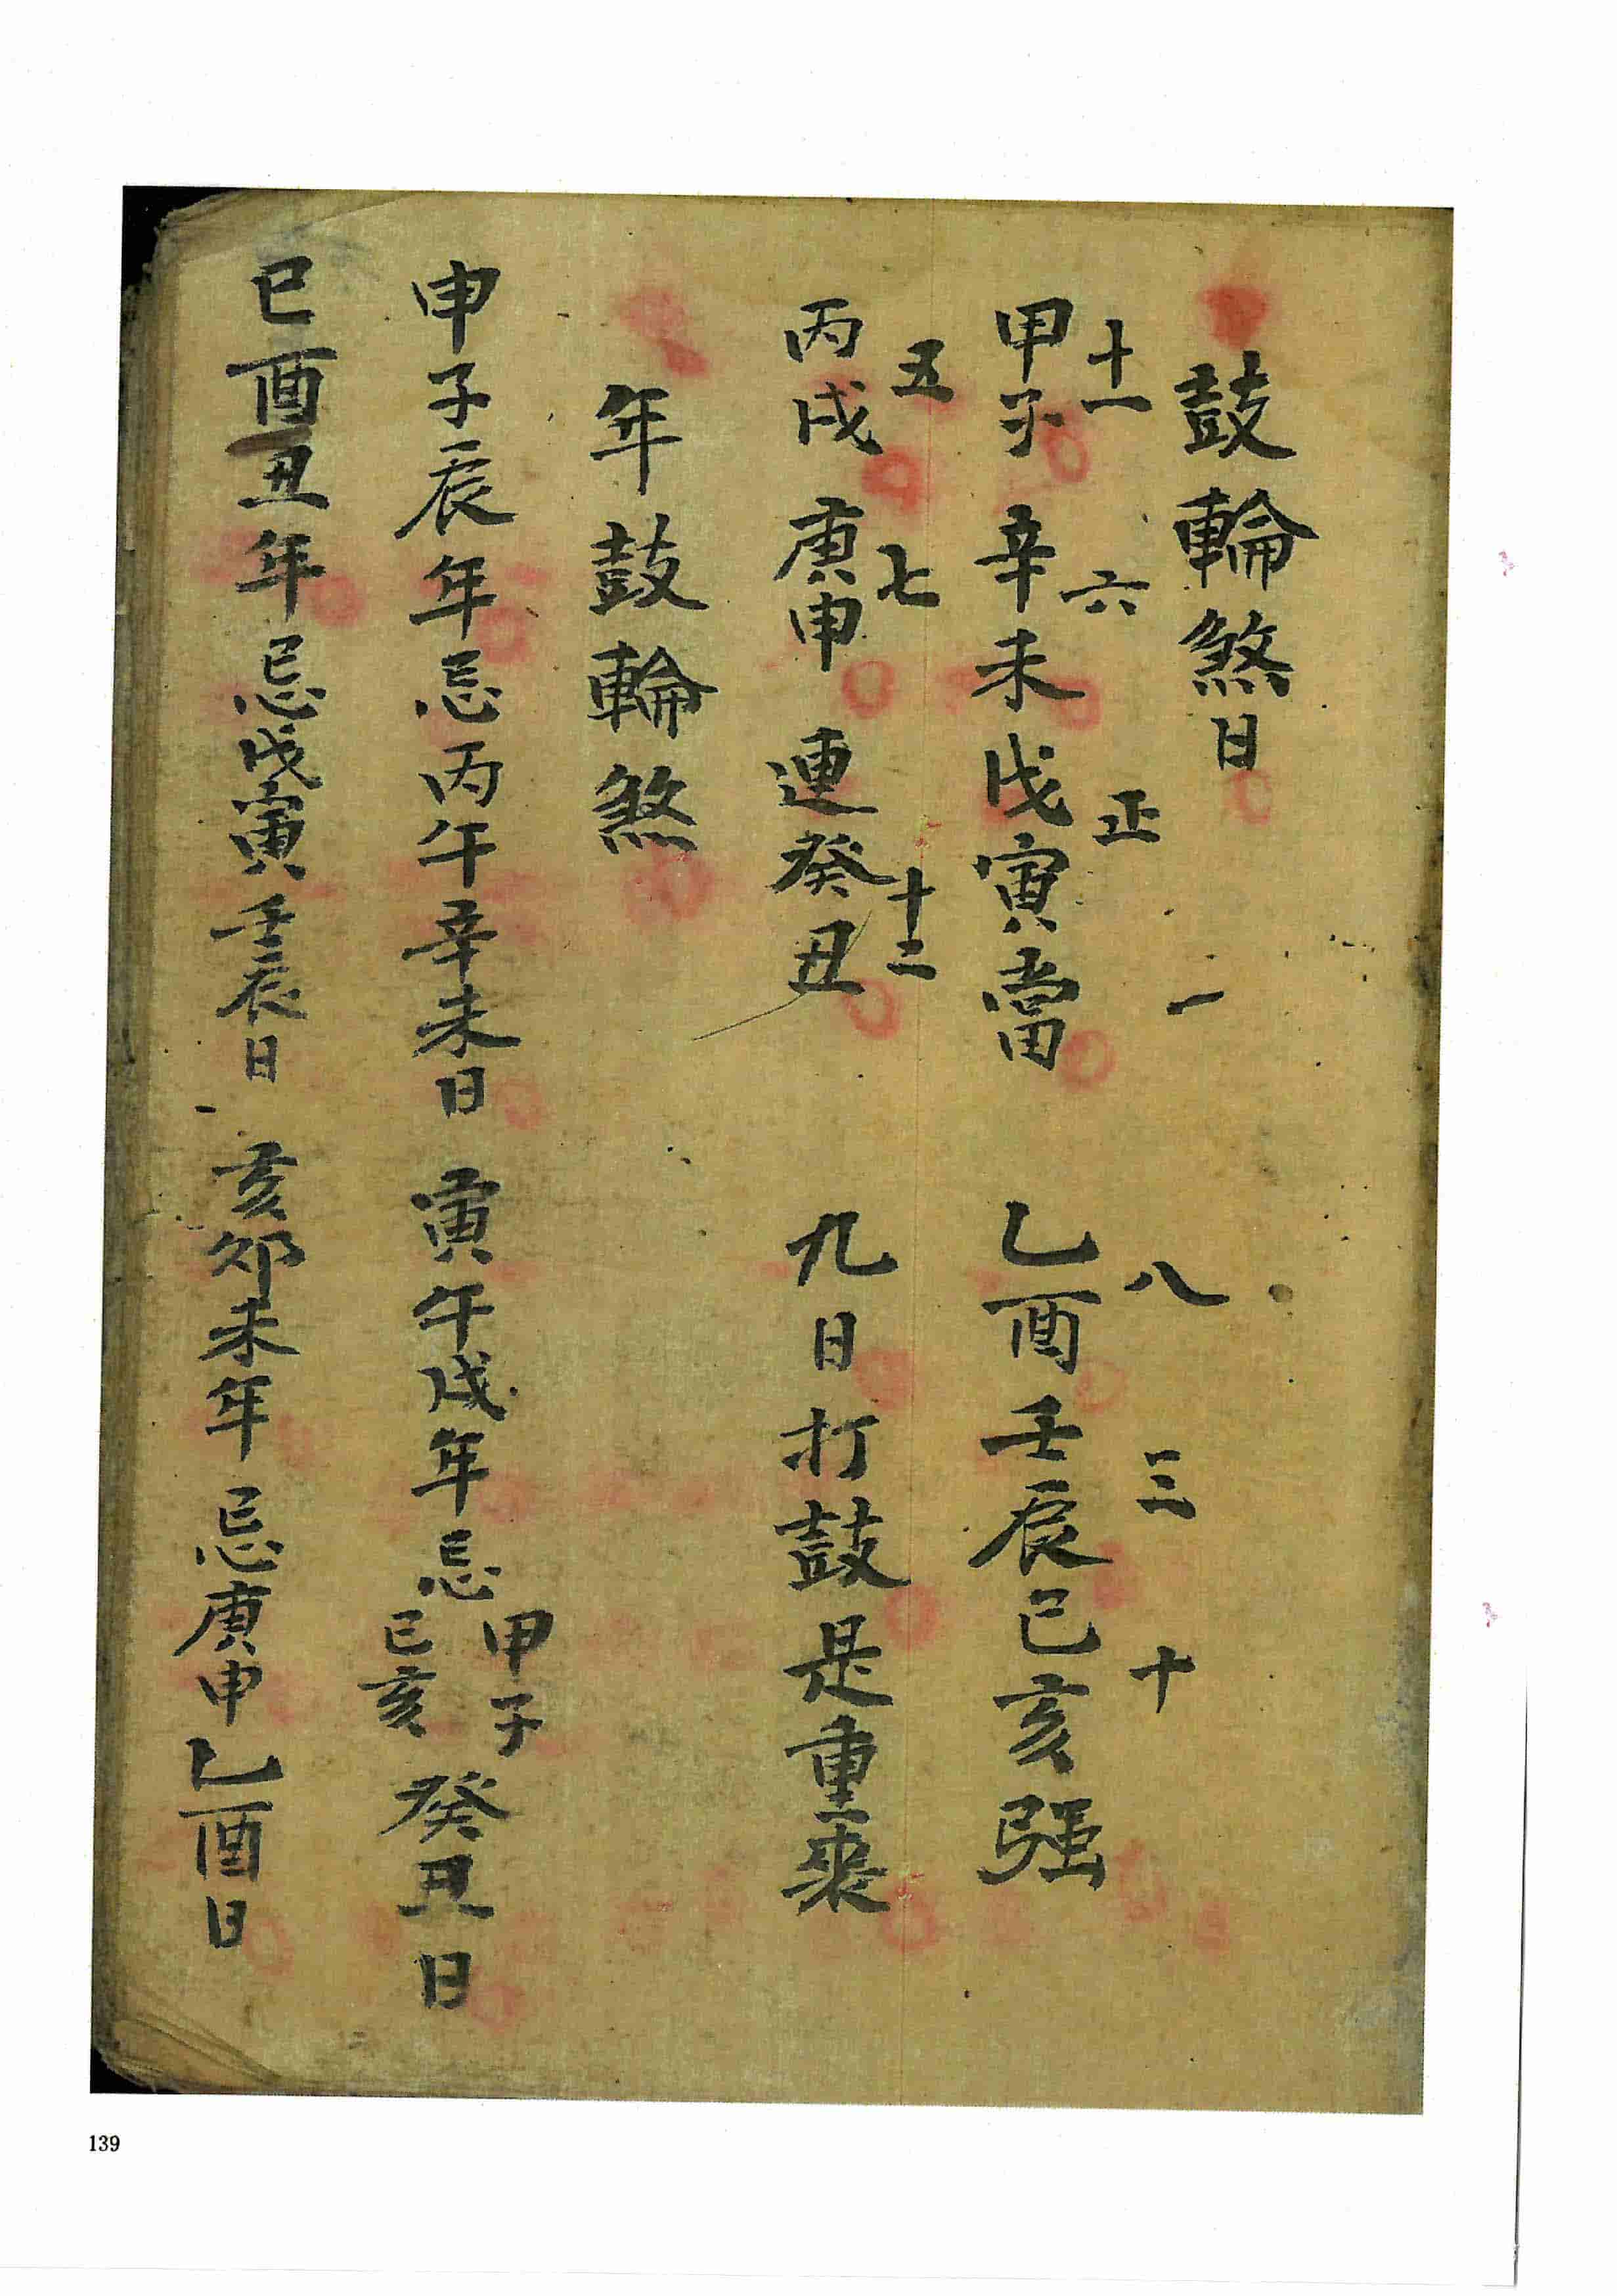 鼓輪煞日
十一 六 正 一 八 三 十
甲子辛未戊寅當 乙酉壬辰巳亥强
五 七 十二
丙戌庚申連癸丑 九日打鼓是重喪
年鼓輪煞
申子辰年忌丙午辛未日 寅午戌年忌甲子巳亥癸丑日
巳酉丑年忌戊寅壬辰日 亥卯未年忌庚申乙酉日
139